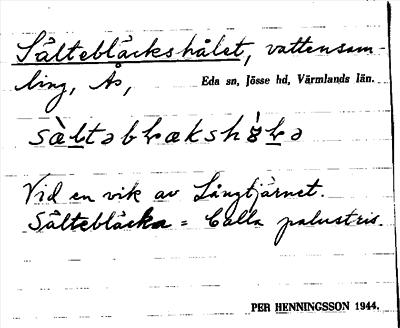 Sältebläckshålet, vattensam-
ling, Ås, Eda sn, Jösse hd, Värmlands län.
Vid en vik av Långtjärnet.
Sältebläcka = Calla palustris.
PER HENNINGSSON 1944.